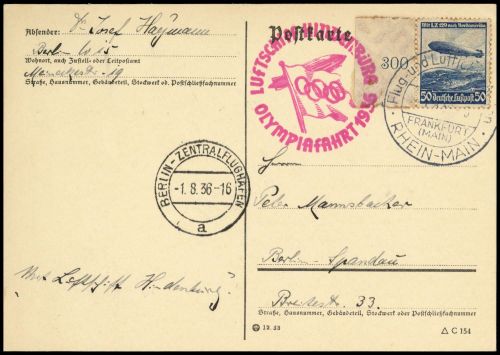 Absender: Dr Josef Haymann
Berlin W 15
Wohnort, auch Zustell- oder Leitpostamt
19
Straße, Hausnummer, Gebäudeteil, Stockwerk od. Postschließfachnummer
Postkarte
LUFTSCHIFF HINDENBURG
OLYMPIAFAHRT 1936
300
Mit LZ 129 nach Nordamerika
50 Deutsche Luftpost 50
Flug- und Luft
FRANKFURT
(MAIN)
RHEIN-MAIN
BERLIN-ZENTRALFLUGHAFEN
-1.8.36-16
a
Herrn
Peter Mannsbacher
Berlin-Spandau
Breitestr. 33.
Straße, Hausnummer, Gebäudeteil, Stockwerk oder Postschließfachnummer
"Mit Luftschiff Hindenburg"
12.35
C 154